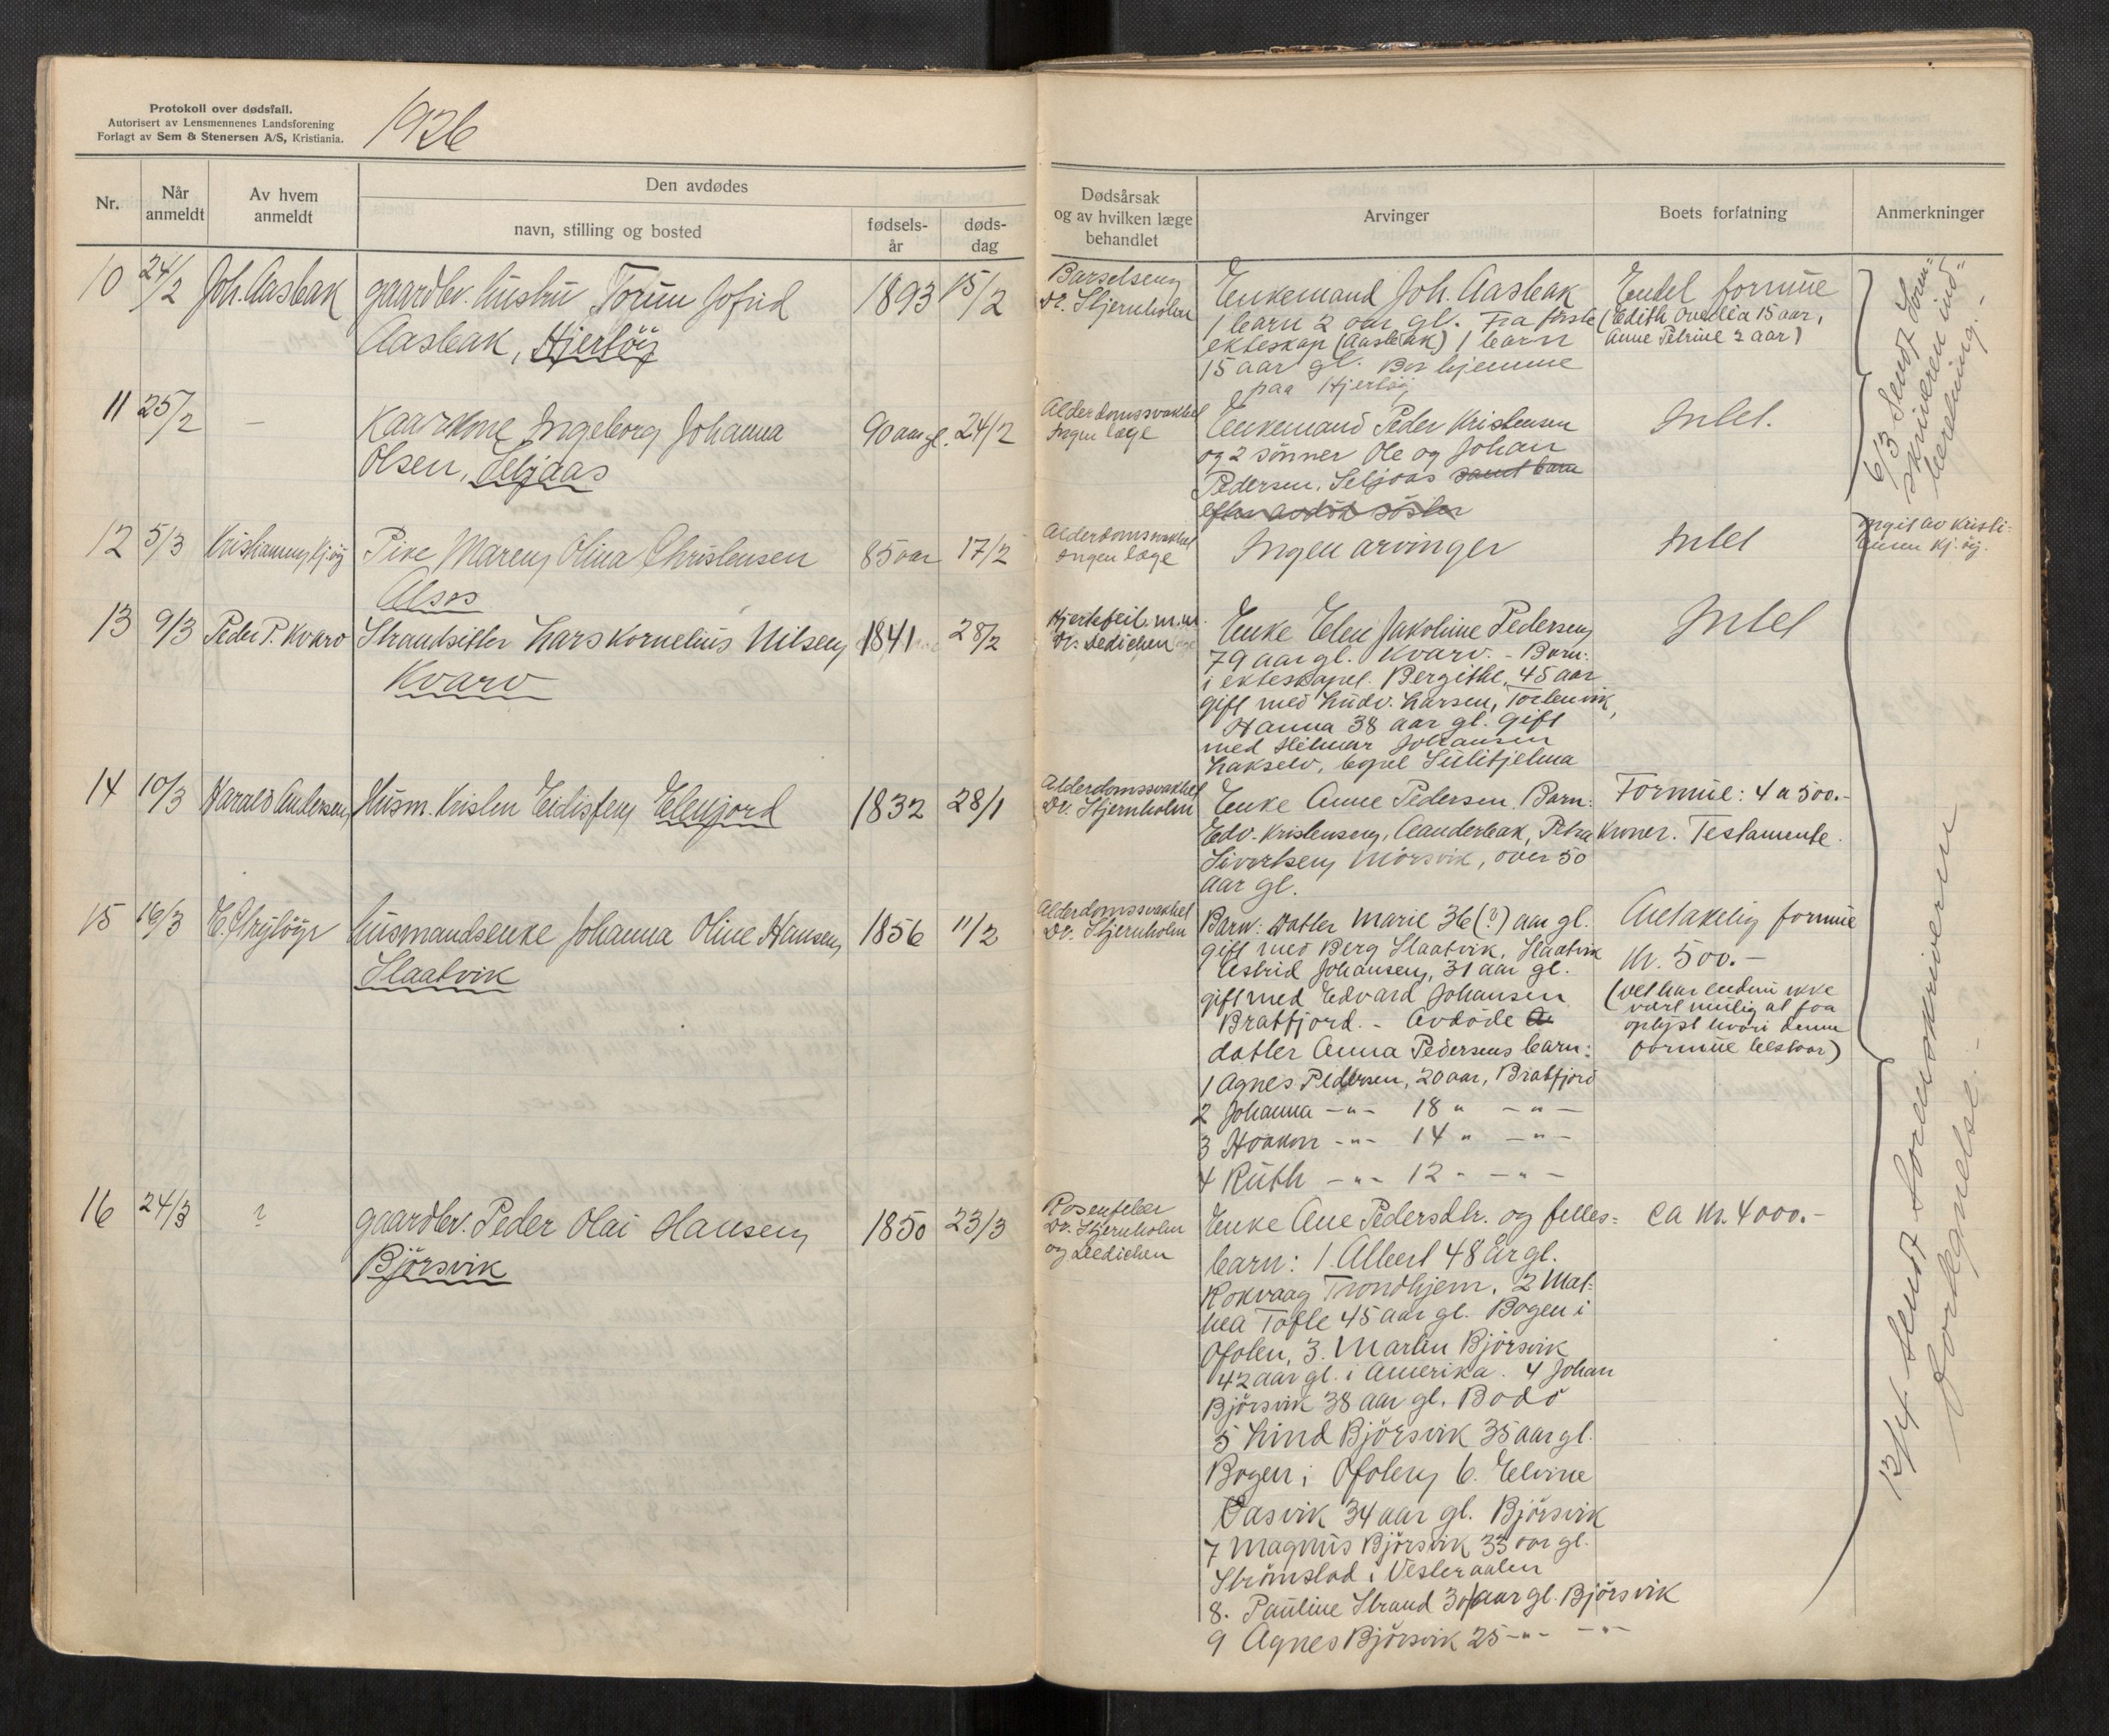 Protokoll over dødsfall.
Autorisert av Lensmennenes Landsforening
Forlagt av Sem & Stenersen A/S, Kristiania.
1926
Nr.
Når anmeldt
Av hvem anmeldt
Den avdødes
navn, stilling og bosted
fødsels-år
døds-dag
Dødsårsak og av hvilken læge behandlet
Arvinger
Boets forfatning
Anmerkninger
10 24/2 Joh. Aasbak gaardbr. hustru Torun Jofrid 1893 15/2
Aasbak, Hjertöy
Barselseng
Dr. Stjernholm
Enkemand Joh. Aasbak
1 barn 2 aar gl. Fra förste
ekteskap (Aasbak) 1 barn
15 aar gl. Bor hjemme
paa Hjertöy
Endel formue
(Edith 15 aar,
Anne Petrine 2 aar)
11 25/2 — Kaarkone Ingeborg Johanna 90 aar gl. 24/2
Olsen, Seljaas
Alderdomssvakhet
Ingen læge
Enkemand Peder Kristensen
og 2 sönner Ole og Johan
Pedersen, Seljaas samt barn
efter avdöd söster
Intet.
6/3 sendt soren-
skriveren ind-
beretning.-
12 5/3 Kristiansen, Kjöy Pike Maren Olina Christensen 85 aar 17/2
Alsos
Alderdomssvakhet
Ingen læge
Ingen arvinger
Intet
av Kristi-
ansen Kj. öy.
13 9/3 Peder P. Kvarv Strandsitter Lars Kornelius Nilsen 1841 28/2
Kvarv
Hjertefeil m.m.
Dr. Dedichen
Enke Elen Jakobine Pedersen
79 aar gl. Kvarv. - Barn:
i ekteskapet. Bergithe, 45 aar
gift med Ludv. Larsen, Torbenvik,
Hanna 38 aar gl. gift
med Hilmar Johansen
Lakselv, bopel Sulitjelma
Intet
14 10/3 Harald Andersen Husm. Kristen Eidissen Elvefjord 1832 28/1
Alderdomssvakhet
Dr. Stjernholm
Enke Anne Pedersen. Barn:
Edv. Kristensen, Aanderbak, Petra
Sivertsen Mörsvik, over 50
aar gl.
Formue: 4 a 500.-
kroner. Testamente.
15 16/3 husmandsenke Johanna Oline Hansen 1856 11/2
Slaatvik
Alderdomssvakhet
Dr. Stjernholm
Barn: Datter Marie 36(?) aar gl.
gift med Berg Slaatvik, Slaatvik
Astrid Johansen, 31 aar gl.
gift med Edvard Johansen
Bratfjord. - Avdöde
datter Anna Pedersens barn:
1 Agnes Pedersen, 20 aar, Bratfjord
2 Johanna -"- 18 " -"-
3 Haakon -"- 14 " -"-
4 Ruth -"- 12 - -"-
Antakelig formue
Kr. 500.-
(Det har endnu ikke
vært mulig at faa
oplyst hvori denne
formue bestaar)
16 24/3 ? gaardbr. Peder Olai Hansen 1850 23/3
Björsvik
Rosenfeber
Dr. Stjernholm
og Dedichen
Enke Ane Pedersdtr. og felles-
barn: 1. Albert 48 år gl.
Rokvaag Trondhjem. 2 Mat-
hea Tofte 45 aar gl. Bogen i
Ofoten, 3. Martin Björsvik
42 aar gl. i Amerika. 4 Johan
Björsvik 38 aar gl. Bodö
5 Lind Björsvik 35 aar gl.
Bogen i Ofoten 6. Elvine
Vasvik 34 aar gl. Björsvik
7 Magnus Björsvik 33 aar gl.
Strömstad i Vesteraalen
8. Pauline Strand 30 aar gl. Björsvik
9 Agnes Björsvik 25 -"- -"-
ca kr. 4000.-
13/4 sendt Sorenskriveren
fortegnelse.-